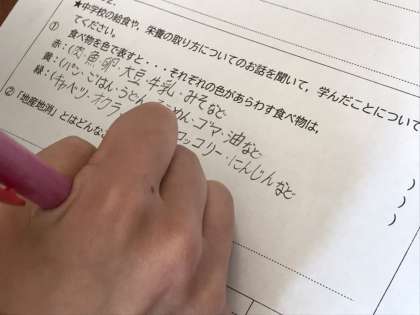 ★中学校の給食や、栄養の取り方についてのお話を聞いて、学んだことについて
てください。
① 食べ物を色で表すと・・・それぞれの色があらわす食べ物は、
赤:(肉・魚・卵・大豆・牛乳・みそなど
黄:(パン・ごはん・うどん・そうめん・ゴマ・油など )
緑:(キャベツ・オクラ ロッコリー・にんじんなど )
② 「地産地消」とはどんな )